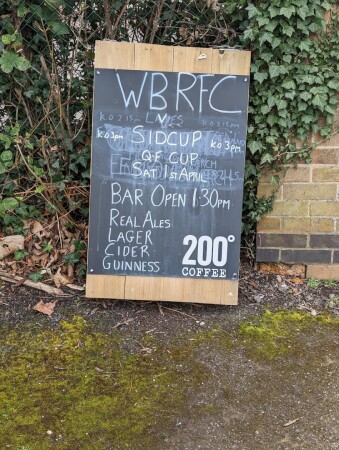 WBRFC
LNIES
K.O 3pm SIDCUP K.O 3pm
QF CUP
SAT 1ST APRIL
BAR OPEN 1:30PM
REAL ALES
LAGER
CIDER
GUINNESS
200°
COFFEE